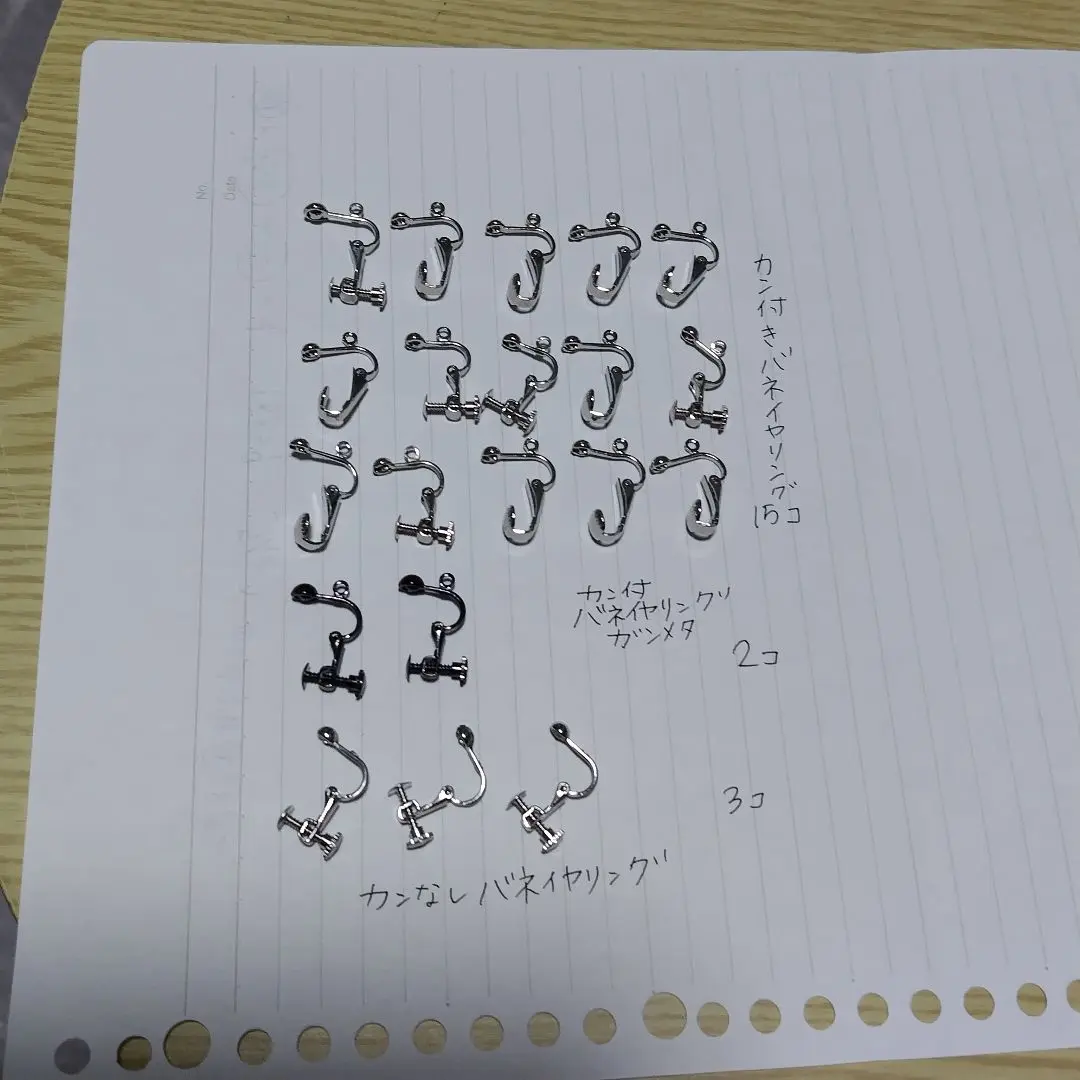 No.
Date
カン付きバネイヤリング
15コ
カン付
バネイヤリング
ガンメタ
2コ
3コ
カンなしバネイヤリング